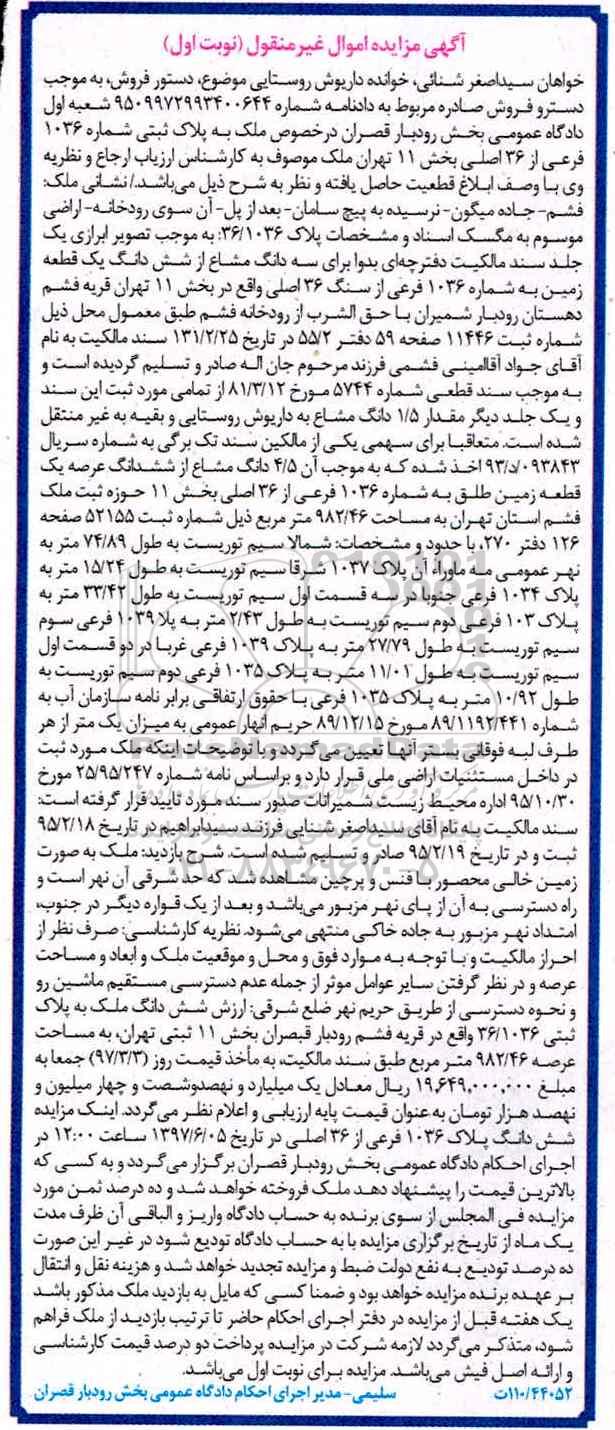 آگهی مزایده اموال غیرمنقول (نوبت اول)
خواهان سیداصغر شنائی، خوانده داریوش روستایی موضوع، دستور فروش، به موجب
دسترو فروش صادره مربوط به دادنامه شماره ۹۵۰۹۹۷۲۹۹۳۴۰۰۶۴۴ شعبه اول
دادگاه عمومی بخش رودبار قصران درخصوص ملک به پلاک ثبتی شماره ۱۰۳۶
فرعی از ۳۶ اصلی بخش ۱۱ تهران ملک موصوف به کارشناس ارزیاب ارجاع و نظریه
وی با وصف ابلاغ قطعیت حاصل یافته و نظر به شرح ذیل می‌باشد./ نشانی ملک:
فشم- جاده میگون- نرسیده به پیچ سامان- بعد از پل- آن سوی رودخانه- اراضی
موسوم به مگسک اسناد و مشخصات پلاک ۳۶/۱۰۳۶: به موجب تصویر ابرازی یک
جلد سند مالکیت دفترچه‌ای بدوا برای سه دانگ مشاع از شش دانگ یک قطعه
زمین به شماره ۱۰۳۶ فرعی از سنگ ۳۶ اصلی واقع در بخش ۱۱ تهران قریه فشم
دهستان رودبار شمیران با حق الشرب از رودخانه فشم طبق معمول محل ذیل
شماره ثبت ۱۱۴۴۶ صفحه ۵۹ دفتر ۵۵/۲ در تاریخ ۱۳۱/۲/۲۵ سند مالکیت به نام
آقای جواد آقاامینی فشمی فرزند مرحوم جان اله صادر و تسلیم گردیده است و
به موجب سند قطعی شماره ۵۷۴۴ مورخ ۸۱/۳/۱۲ از تمامی مورد ثبت این سند
و یک جلد دیگر مقدار ۱/۵ دانگ مشاع به داریوش روستایی و بقیه به غیر منتقل
شده است. متعاقبا برای سهمی یکی از مالکین سند تک برگی به شماره سریال
۹۳/د/۰۹۳۸۴۳ اخذ شده که به موجب آن ۴/۵ دانگ مشاع از ششدانگ عرصه یک
قطعه زمین طلق به شماره ۱۰۳۶ فرعی از ۳۶ اصلی بخش ۱۱ حوزه ثبت ملک
فشم استان تهران به مساحت ۹۸۲/۴۶ متر مربع ذیل شماره ثبت ۵۲۱۵۵ صفحه
۱۲۶ دفتر ۲۷۰، با حدود و مشخصات: شمالا سیم توریست به طول ۷۴/۸۹ متر به
نهر عمومی مه ماوراء آن پلاک ۱۰۳۷ شرقا سیم توریست به طول ۱۵/۲۴ متر به
پلاک ۱۰۳۴ فرعی جنوبا در سه قسمت اول سیم توریست به طول ۳۳/۴۲ متر به
پلاک ۱۰۳ فرعی دوم سیم توریست به طول ۲/۴۳ متر به پلا ۱۰۳۹ فرعی سوم
سیم توریست به طول ۲۷/۷۹ متر به پلاک ۱۰۳۹ فرعی غربا در دو قسمت اول
سیم توریست به طول ۱۱/۰۱ متر به پلاک ۱۰۳۵ فرعی دوم سیم توریست به
طول ۱۰/۹۲ متر به پلاک ۱۰۳۵ فرعی با حقوق ارتفاقی برابر نامه سازمان آب به
شماره ۸۹/۱۱۹۲/۴۴۱ مورخ ۸۹/۱۲/۱۵ حریم انهار عمومی به میزان یک متر از هر
طرف لبه فوقانی بستر آنها تعیین می‌گردد و با توضیحات اینکه ملک مورد ثبت
در داخل مستثنیات اراضی ملی قرار دارد و براساس نامه شماره ۲۵/۹۵/۲۴۷ مورخ
۹۵/۱۰/۳۰ اداره محیط زیست شمیرانات صدور سند مورد تایید قرار گرفته است:
سند مالکیت به نام آقای سیداصغر شنایی فرزند سیدابراهیم در تاریخ ۹۵/۲/۱۸
ثبت و در تاریخ ۹۵/۲/۱۹ صادر و تسلیم شده است. شرح بازدید: ملک به صورت
زمین خالی محصور با فنس و پرچین مشاهده شد که حد شرقی آن نهر است و
راه دسترسی به آن از پای نهر مزبور می‌باشد و بعد از یک قواره دیگر در جنوب،
امتداد نهر مزبور به جاده خاکی منتهی می‌شود. نظریه کارشناسی: صرف نظر از
احراز مالکیت و با توجه به موارد فوق و محل و موقعیت ملک و ابعاد و مساحت
عرصه و در نظر گرفتن سایر عوامل موثر از جمله عدم دسترسی مستقیم ماشین رو
و نحوه دسترسی از طریق حریم نهر ضلع شرقی: ارزش شش دانگ ملک به پلاک
ثبتی ۳۶/۱۰۳۶ واقع در قریه فشم رودبار قبصران بخش ۱۱ ثبتی تهران، به مساحت
عرصه ۹۸۲/۴۶ متر مربع طبق سند مالکیت، به مأخذ قیمت روز (۹۷/۳/۳) جمعا به
مبلغ ۱۹,۶۴۹,۰۰۰,۰۰۰ ریال معادل یک میلیارد و نهصدوشصت و چهار میلیون و
نهصد هزار تومان به عنوان قیمت پایه ارزیابی و اعلام نظر می‌گردد. اینک مزایده
شش دانگ پلاک ۱۰۳۶ فرعی از ۳۶ اصلی در تاریخ ۱۳۹۷/۶/۰۵ ساعت ۱۲:۰۰ در
اجرای احکام دادگاه عمومی بخش رودبار قصران برگزار می‌گردد و به کسی که
بالاترین قیمت را پیشنهاد دهد ملک فروخته خواهد شد و ده درصد ثمن مورد
مزایده فی المجلس از سوی برنده به حساب دادگاه واریز و الباقی آن ظرف مدت
یک ماه از تاریخ برگزاری مزایده با به حساب دادگاه تودیع شود در غیر این صورت
ده درصد تودیع به نفع دولت ضبط و مزایده تجدید خواهد شد و هزینه نقل و انتقال
بر عهده برنده مزایده خواهد بود و ضمنا کسی که مایل به بازدید ملک مذکور باشد
یک هفته قبل از مزایده در دفتر اجرای احکام حاضر تا ترتیب بازدید از ملک فراهم
شود، متذکر می‌گردد لازمه شرکت در مزایده پرداخت دو درصد قیمت کارشناسی
و ارائه اصل فیش می‌باشد. مزایده برای نوبت اول می‌باشد.
۱۱۰/۴۴۰۵۲ت سلیمی- مدیر اجرای احکام دادگاه عمومی بخش رودبار قصران
۰۲۱-۸۸۳۴۹۶۷۰-۵